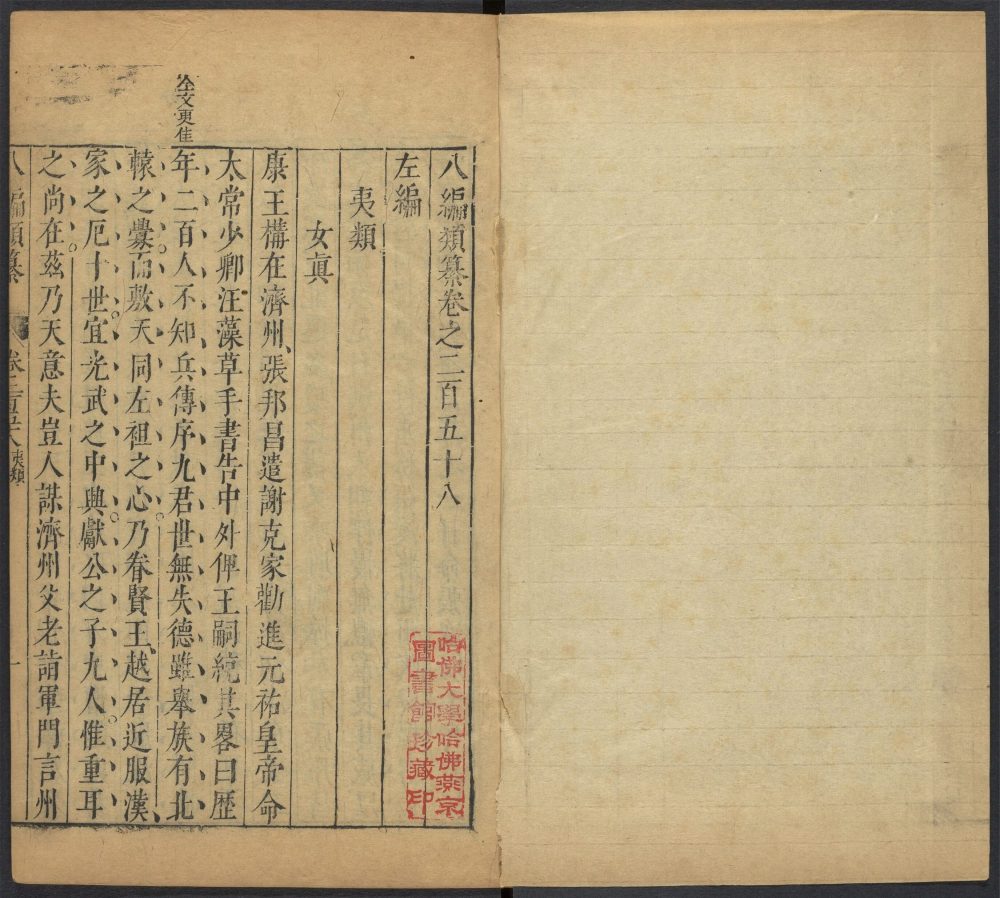 八編類纂卷之二百五十八
左編
夷類
女眞
康王構在濟州張邦昌遣謝克家勸進元祐皇帝命
太常少卿汪藻草手書告中外俾王嗣統其畧曰歷
年二百人不知兵傳序九君世無失德雖舉族有北
轅之釁而敷天同左袒之心乃眷賢王越居近服漢
家之厄十世宜光武之中興獻公之子九人惟重耳
之尚在茲乃天意夫豈人謀濟州父老詣軍門言州
全文更佳
八編類纂
卷二百五十八
夷類
一
哈佛大學哈佛燕京
圖書館珍藏印